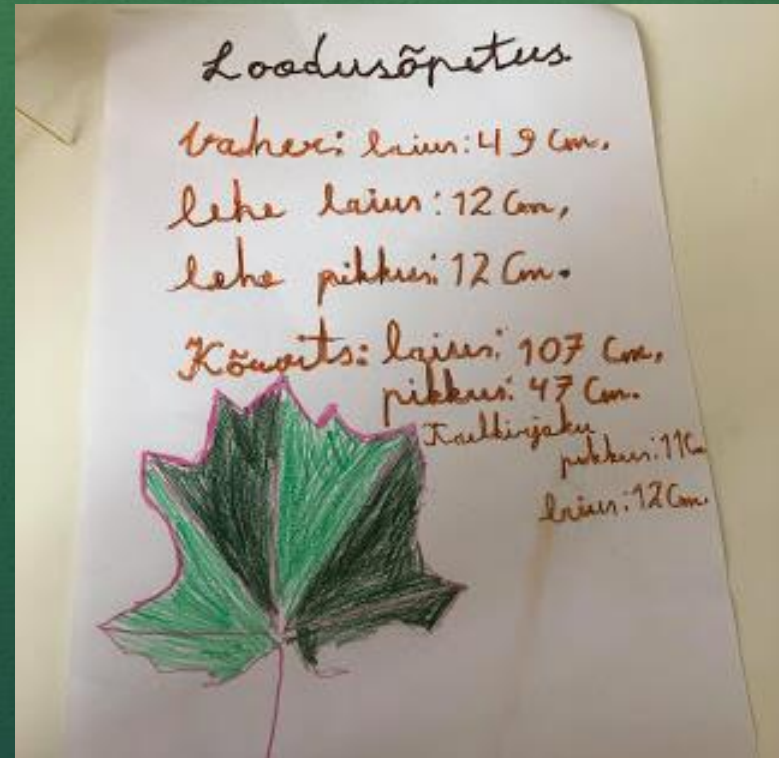 Loodusõpetus
Vaher: laius: 49 Cm,
lehe laius: 12 Cm,
lehe pikkus: 12 Cm.
Kõrvits: laius: 107 Cm,
pikkus: 47 Cm.
pikkus: 11C
laius: 12 Cm.